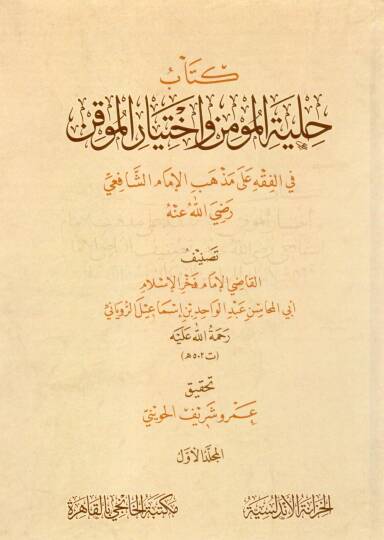 كتاب
حلية المؤمن واختيار الموقن
في الفقه على مذهب الإمام الشافعي
رضي الله عنه
تصنيف
القاضي الإمام فخر الإسلام
أبي المحاسن عبد الواحد بن إسماعيل الروياني
رحمة الله عليه
(ت ٥٠٢ هـ)
تحقيق
عمرو شريف الحويني
المجلد الأول
الخزانة الأندلسية مكتبة الخانجي بالقاهرة